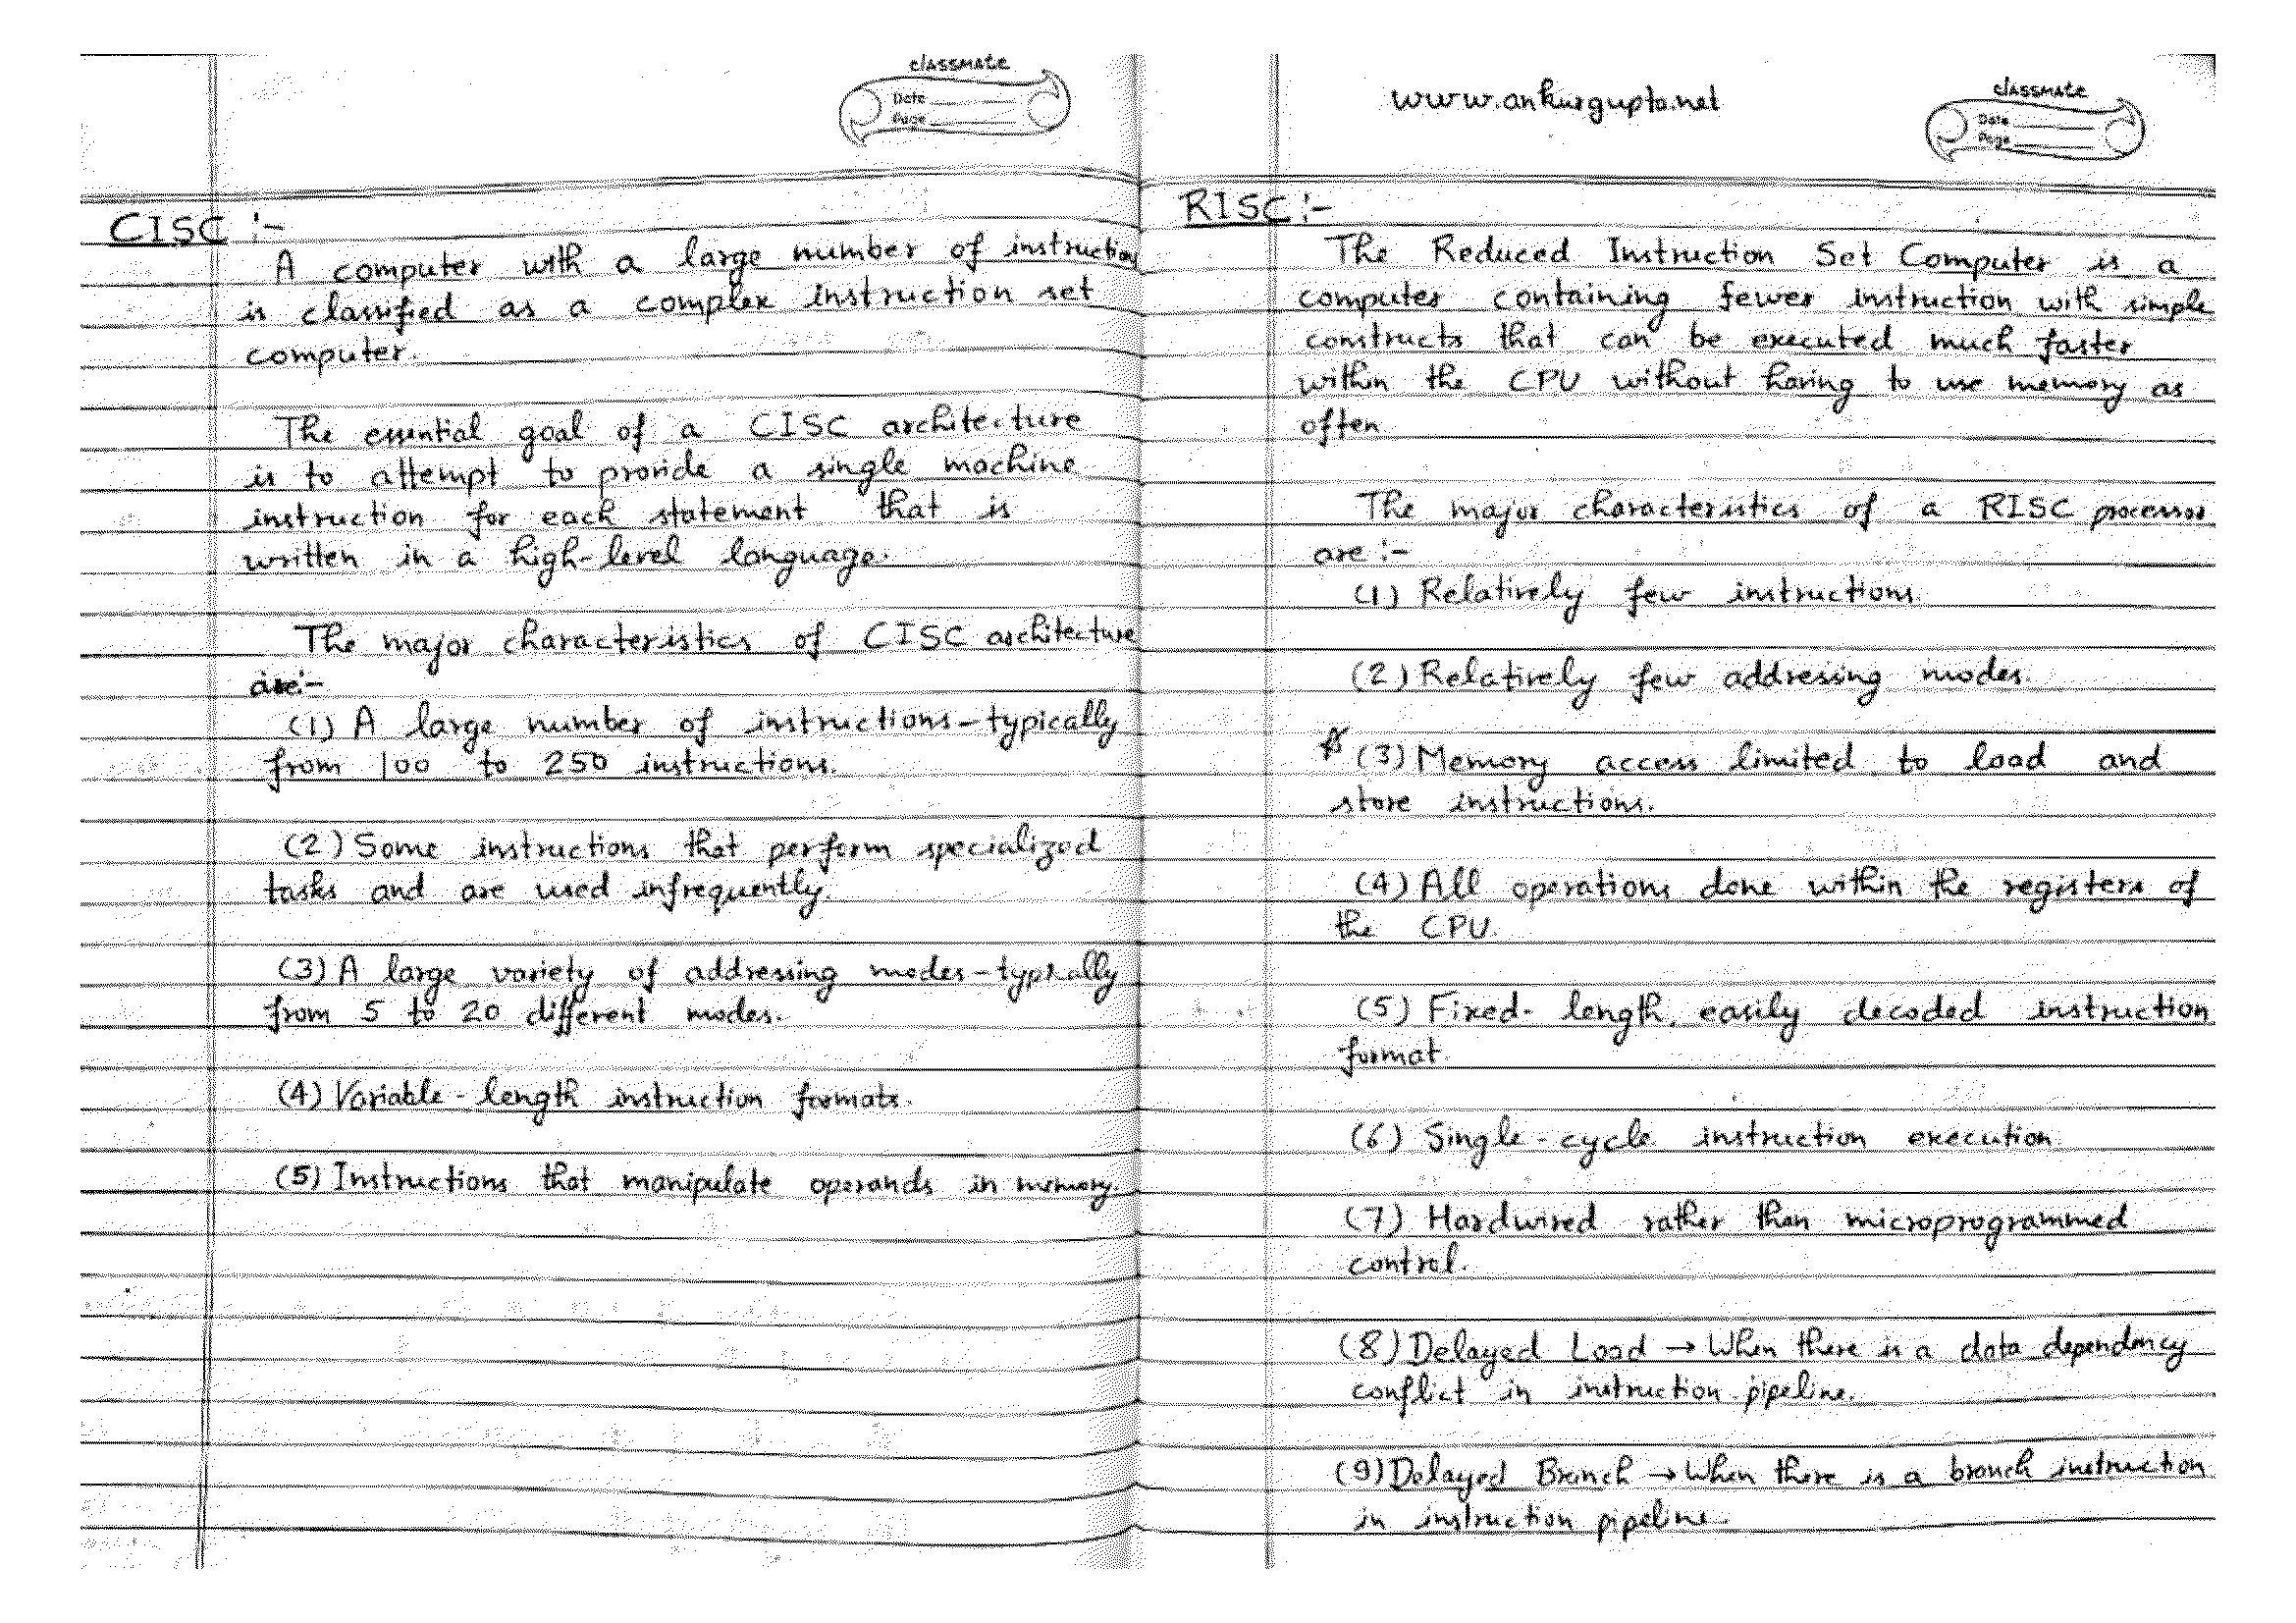 classmate
Date
Page
CISC :-
A computer with a large number of instruction
is classified as a complex instruction set
computer.
The essential goal of a CISC architecture
is to attempt to provide a single machine
instruction for each statement that is
written in a high-level language.
The major characteristics of CISC architecture
are:-
(1) A large number of instructions - typically
from 100 to 250 instructions.
(2) Some instructions that perform specialized
tasks and are used infrequently.
(3) A large variety of addressing modes - typically
from 5 to 20 different modes.
(4) Variable - length instruction formats.
(5) Instructions that manipulate operands in memory.
www.ankurgupta.net
classmate
Date
Page
RISC :-
The Reduced Instruction Set Computer is a
computer containing fewer instruction with simple
constructs that can be executed much faster
within the CPU without having to use memory as
often
The major characteristics of a RISC processor
are :-
(1) Relatively few instructions.
(2) Relatively few addressing modes.
(3) Memory access limited to load and
store instructions.
(4) All operations done within the registers of
the CPU.
(5) Fixed- length, easily decoded instruction
format.
(6) Single - cycle instruction execution.
(7) Hardwired rather than microprogrammed
control.
(8) Delayed Load → When there is a data dependency
conflict in instruction pipeline.
(9) Delayed Branch → When there is a branch instruction
in instruction pipeline.